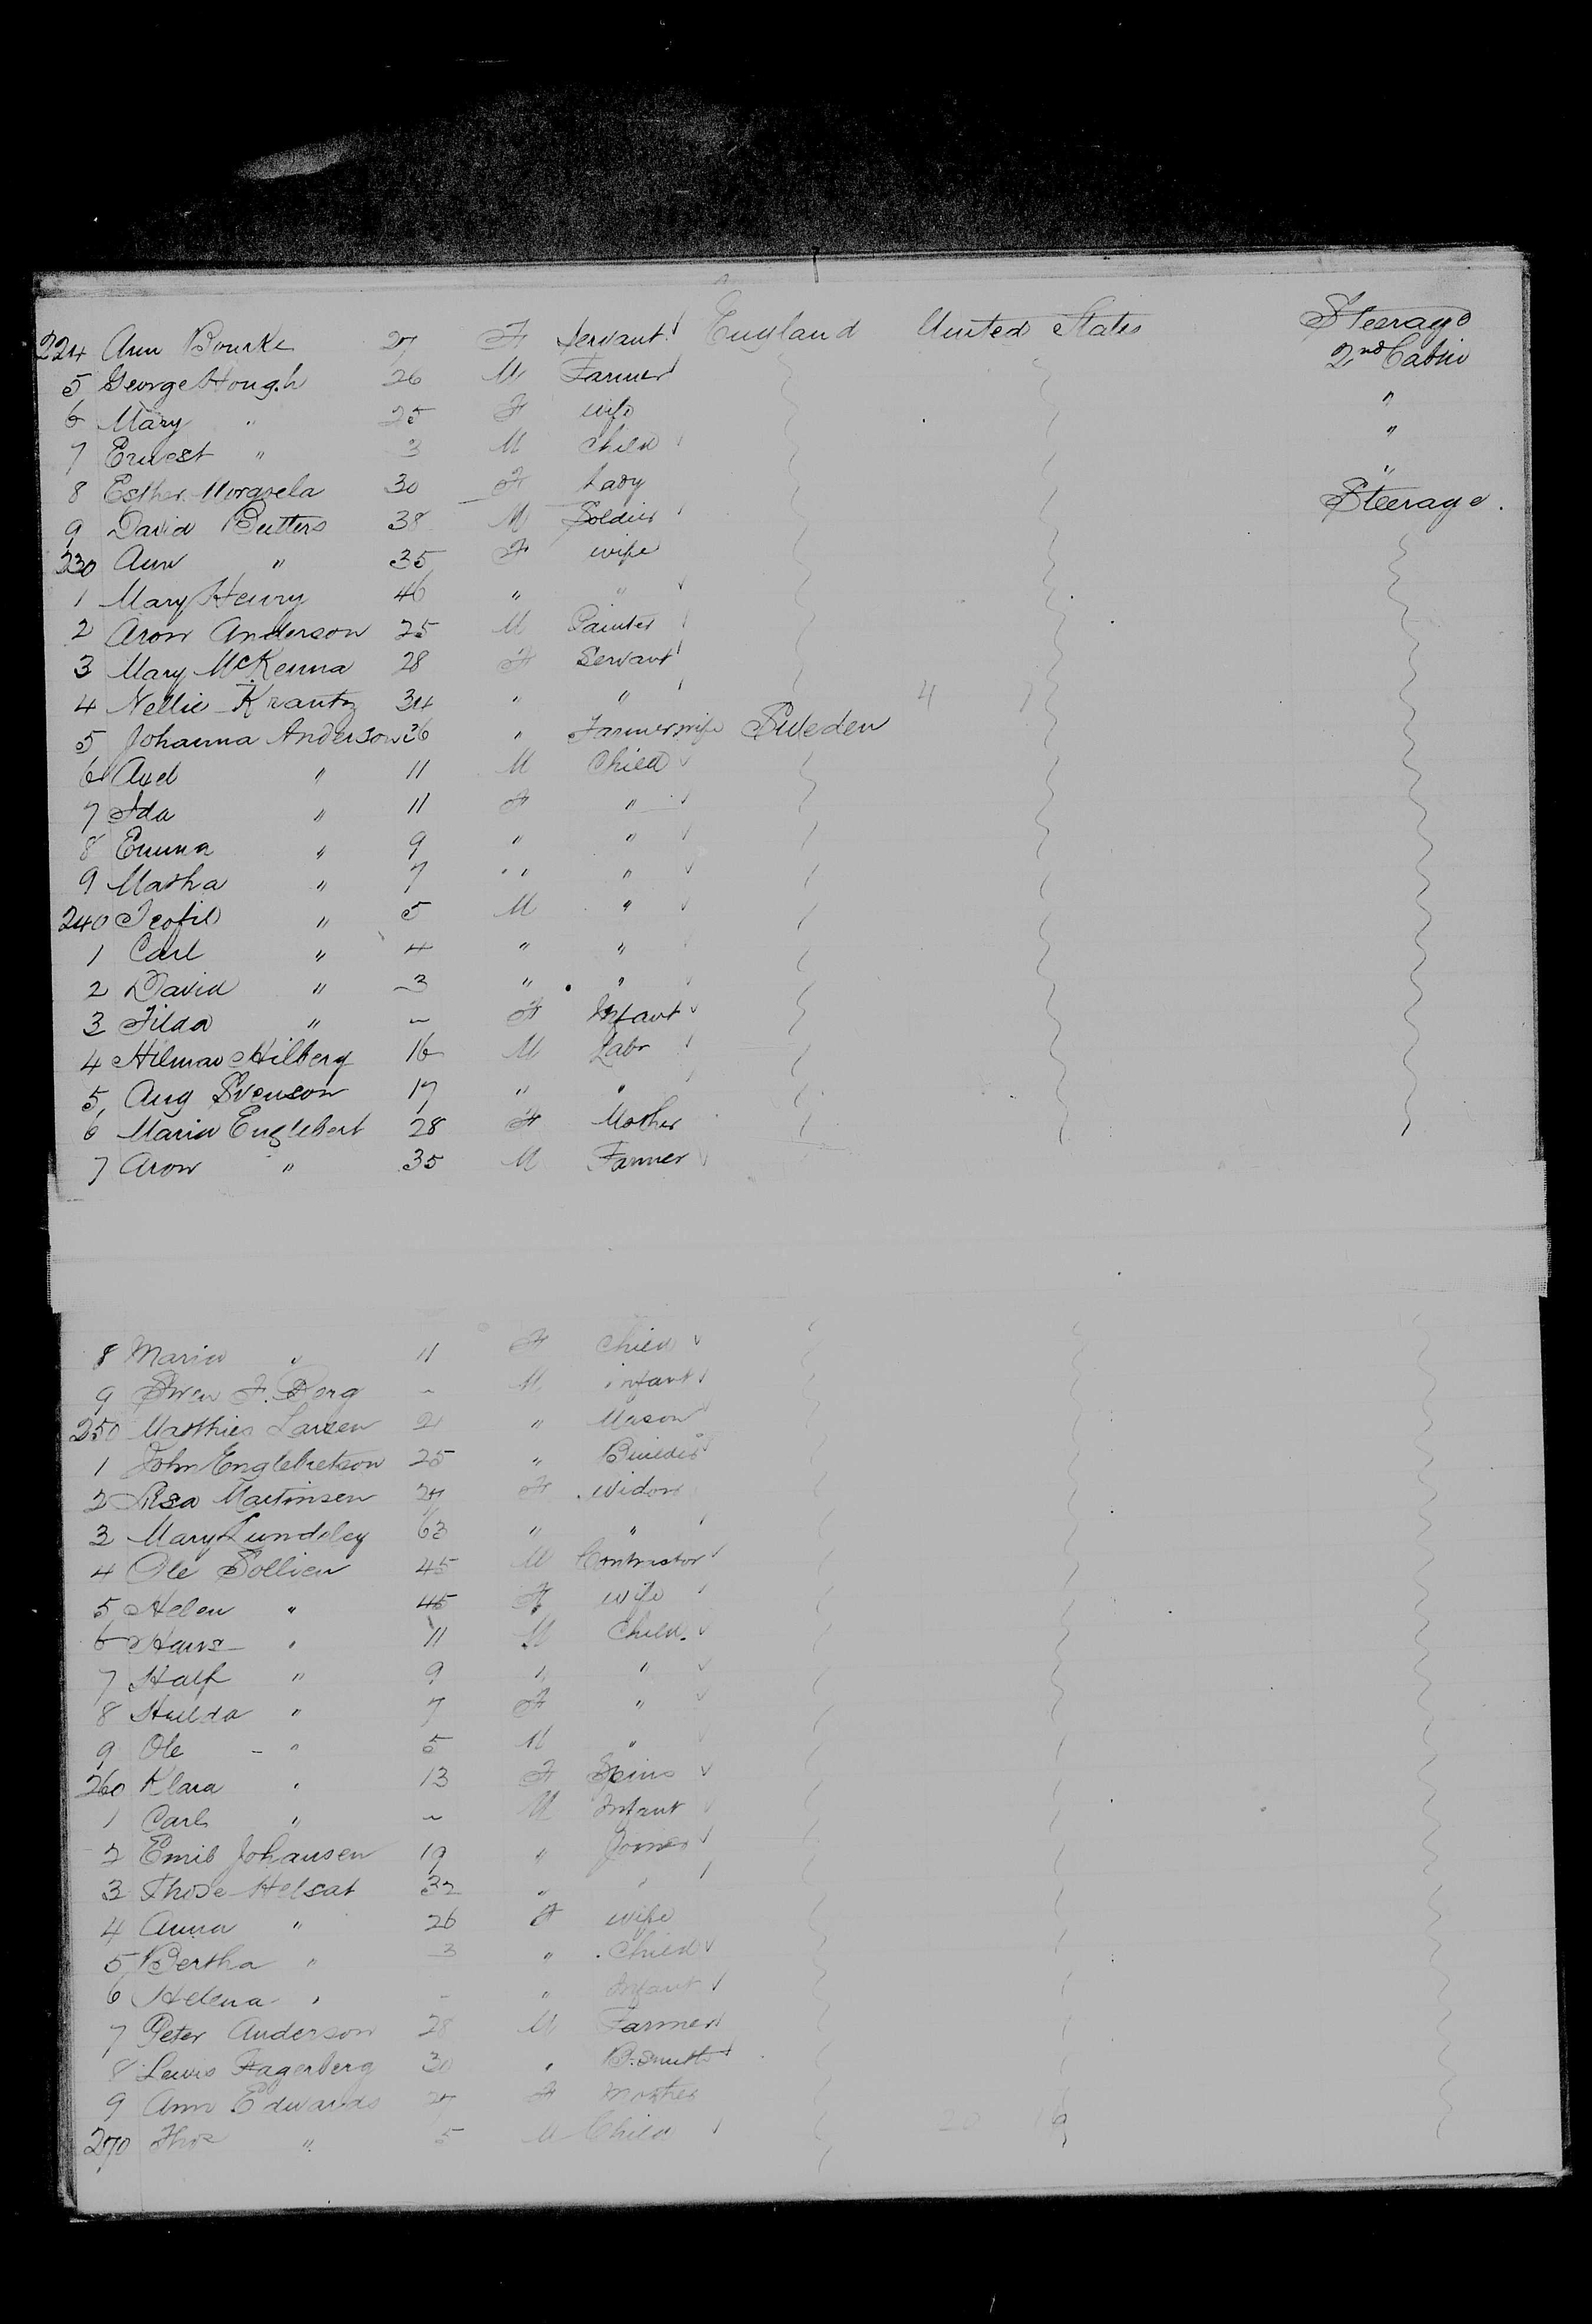 224 Ann Bourke 27 F Servant England United States Steerage
5 George Hough 26 M Farmer 2nd Cabin
6 Mary " 25 F wife "
7 Ernest " 3 M Child "
8 Esther 30 F Lady "
9 David Butters 38 M Soldier Steerage.
230 Ann " 35 F wife
1 Mary Henry 46 " "
2 Aron Anderson 25 M Painter
3 Mary McKenna 28 F Servant
4 Nellie Krantz 34 " "
5 Johanna Anderson 36 " Farmerswife Sweden
6 Axel " 11 M Child
7 Ida " 11 F "
8 Emma " 9 " "
9 Matha " 7 " "
240 Teofil " 5 M "
1 Carl " 4 " "
2 David " 3 " "
3 Tilda " ~ F Infant
4 Hilmar Hilberg 16 M Labr
5 Aug Svenson 17 " "
6 Maria Englebert 28 F Mother
7 Aron " 35 M Farmer
8 Maria " 11 F Child
9 Swen F. Berg ~ M infant
250 Matthies Larsen 21 " Mason
1 John Englebretson 25 " Builder
2 Martinsen 27 F Widow
3 Mary Lundeley 63 " "
4 Ole Sollien 45 M Contractor
5 Helen " 45 F wife
6 Hans " 11 M Child.
7 Half " 9 " "
8 Hulda " 7 F "
9 Ole " 5 M "
260 Klara " 13 F Spins
1 Carl " ~ M Infant
2 Emil Johansen 19 " Joiner
3 Helsat 32 " "
4 Anna " 26 F wife
5 Bertha " 3 " Child
6 Helena " - " Infant
7 Peter Anderson 28 M Farmer
8 Lewis Fagerberg 30 " B. Smith
9 Ann Edwards 27 F Mother
270 Thos " 5 M Child